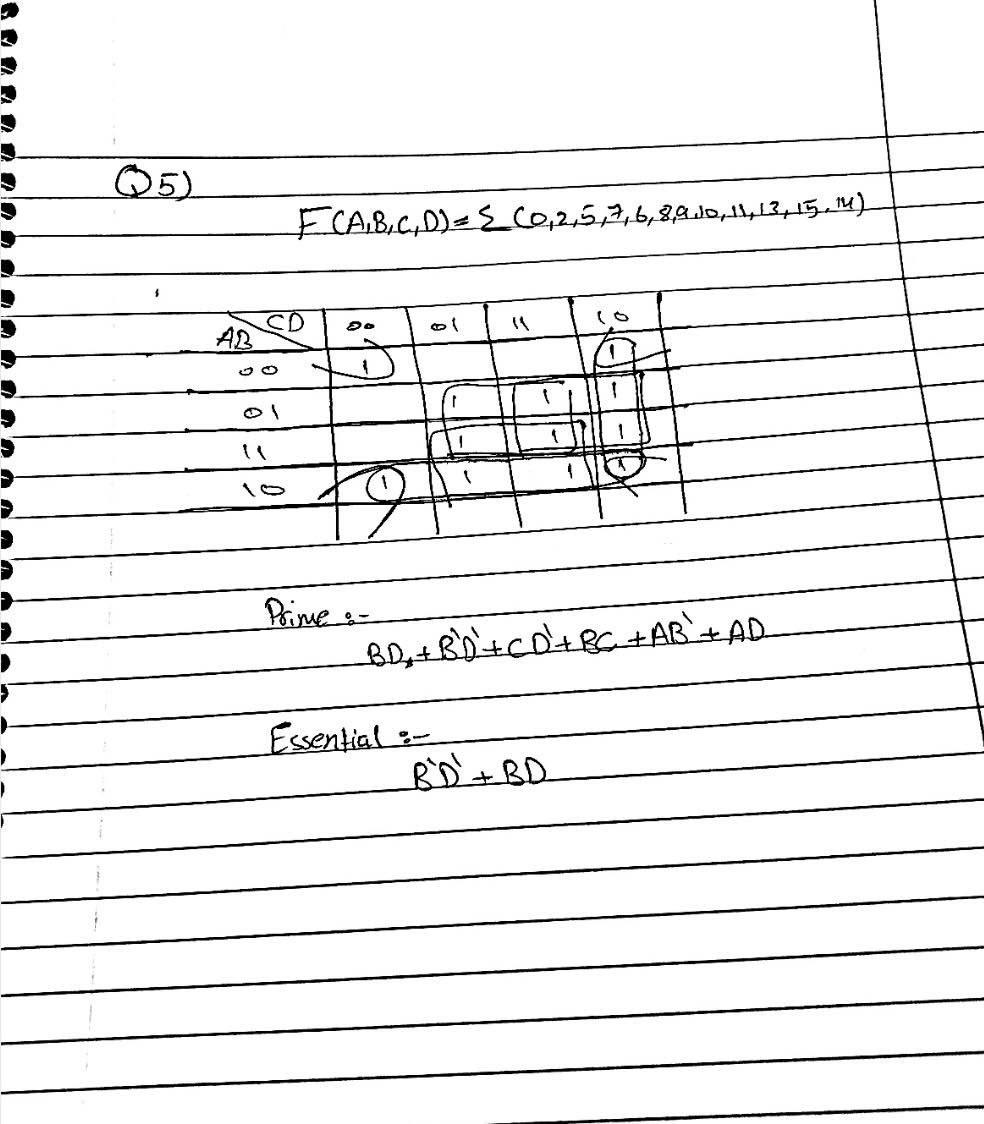 Q5)
F(A,B,C,D)=Σ(0,2,5,7,6,8,9,10,11,13,15,14)
CD 00 01 11 10
AB
00 1 1
01 1 1 1
11 1 1 1
10 1 1 1 1
Prime :-
BD + B'D' + CD' + BC + AB' + AD
Essential :-
B'D' + BD